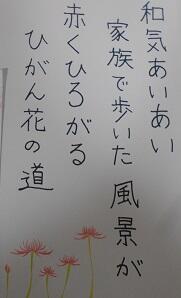 和気あいあい
家族で歩いた風景が
赤くひろがる
ひがん花の道